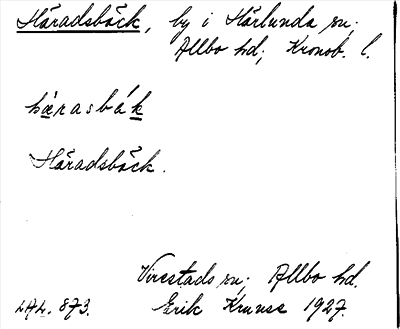 Häradsbäck, by i Härlunda sn;
Allbo hd; Kronob. l.
hærasbák
Häradsbäck.
Virestads sn; Allbo hd.
LAL. 873. Erik Kruuse 1927.